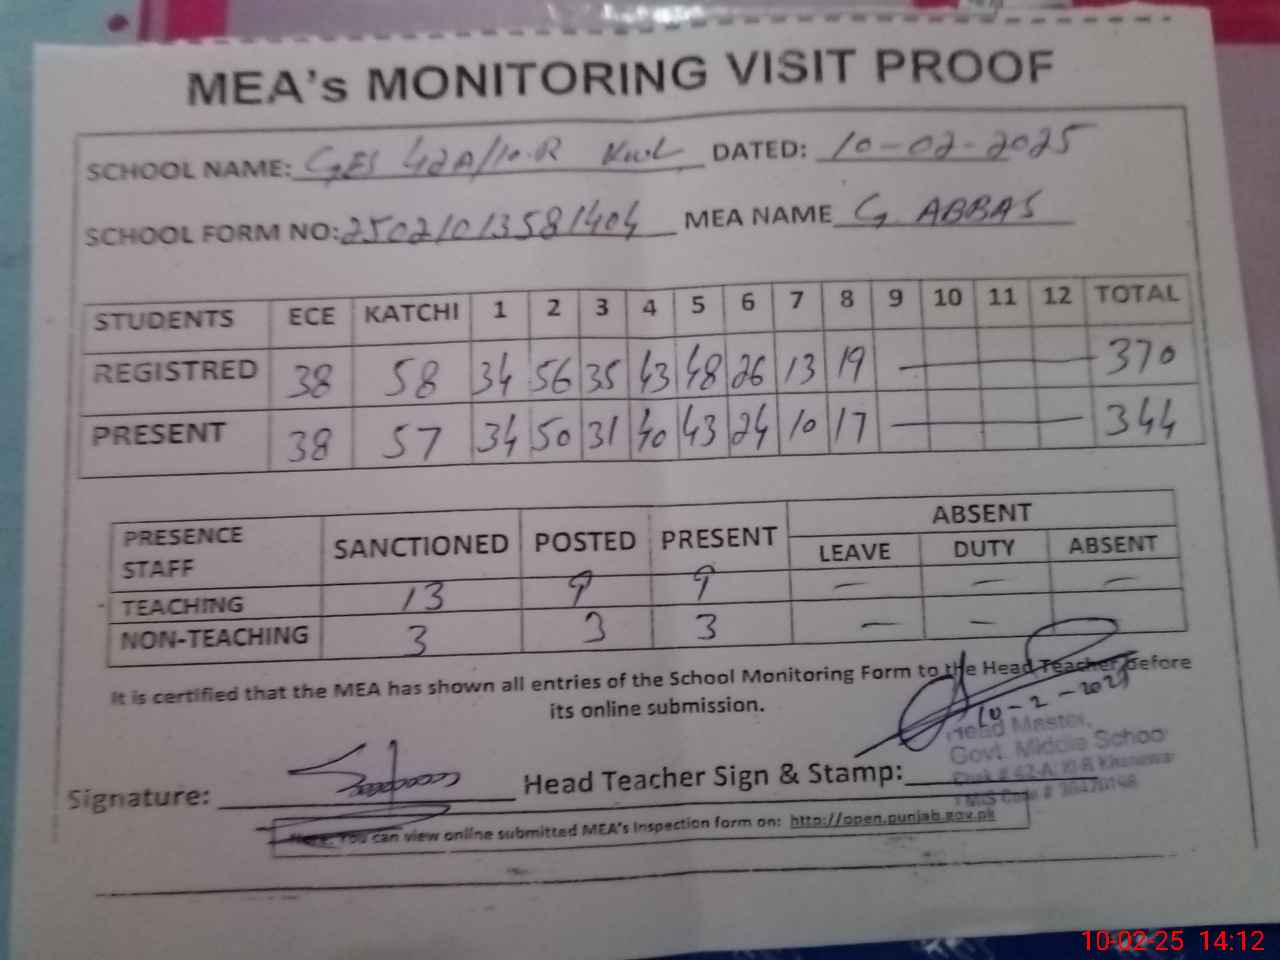 MEA's MONITORING VISIT PROOF
SCHOOL NAME: GES 42A/10-R KWL DATED: 10-02-2025
SCHOOL FORM NO: 25021013581404 MEA NAME G ABBAS
STUDENTS ECE KATCHI 1 2 3 4 5 6 7 8 9 10 11 12 TOTAL
REGISTRED 38 58 34 56 35 43 48 26 13 19 — 370
PRESENT 38 57 34 50 31 40 43 24 10 17 — 344
PRESENCE STAFF SANCTIONED POSTED PRESENT ABSENT
LEAVE DUTY ABSENT
TEACHING 13 9 9 — — —
NON-TEACHING 3 3 3 — —
It is certified that the MEA has shown all entries of the School Monitoring Form to the Head Teacher before
its online submission.
10-2-2025
Head Master,
Govt. Middle School
Signature: Head Teacher Sign & Stamp:
Note: You can view online submitted MEA's Inspection form on: http://open.punjab.gov.pk
10-02-25 14:12